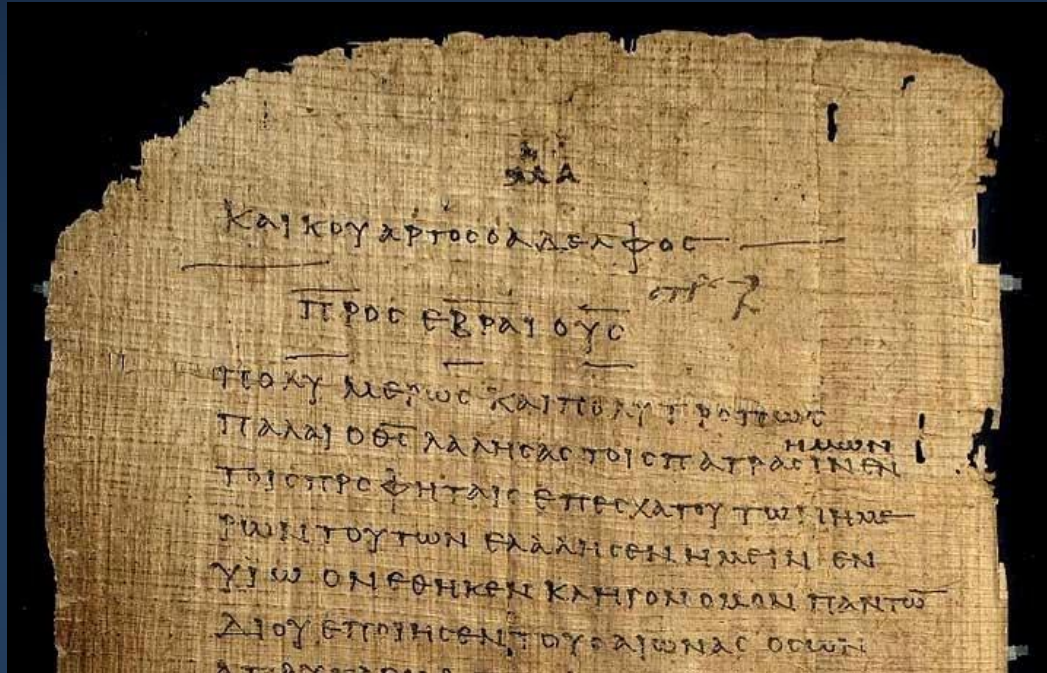 ΚΑΙ ΚΟΥΑΡΤΟϹ Ο ΑΔΕΛΦΟϹ
ΠΡΟϹ ΕΒΡΑΙΟΥϹ
ΠΟΛΥΜΕΡΩϹ ΚΑΙ ΠΟΛΥΤΡΟΠΩϹ
ΗΜΩΝ
ΠΑΛΑΙ Ο Θ̅Ϲ̅ ΛΑΛΗϹΑϹ ΤΟΙϹ ΠΑΤΡΑϹΙΝ ΕΝ
ΤΟΙϹ ΠΡΟΦΗΤΑΙϹ ΕΠ ΕϹΧΑΤΟΥ ΤΩΝ ΗΜΕ
ΡΩΝ ΤΟΥΤΩΝ ΕΛΑΛΗϹΕΝ ΗΜΕΙΝ ΕΝ
ΥΙΩ ΟΝ ΕΘΗΚΕΝ ΚΛΗΡΟΝΟΜΟΝ ΠΑΝΤΩ̅
ΔΙ ΟΥ ΕΠΟΙΗϹΕΝ ΤΟΥϹ ΑΙΩΝΑϹ ΟϹ ΩΝ